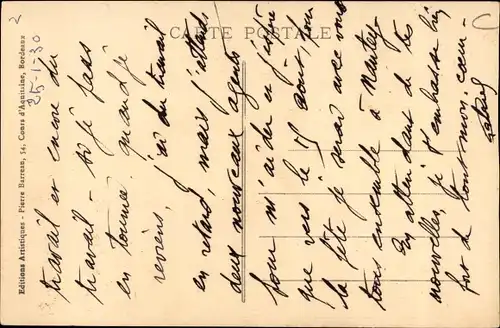 CARTE POSTALE
Editions Artistiques - Pierre Barreau, 54, Cours d'Aquitaine, Bordeaux
2
25-1-30
travail et encore du
travail - si je pars
en tournée quand je
reviens, j'ai du travail
en retard, mais j'attends
deux nouveaux agents
pour m'aider et j'espère
que vers le 15 août, pour
la fête je serai avec vous
tous ensemble à
En attendant de tes
nouvelles, je t'embrasse bien
fort de tout mon cœur